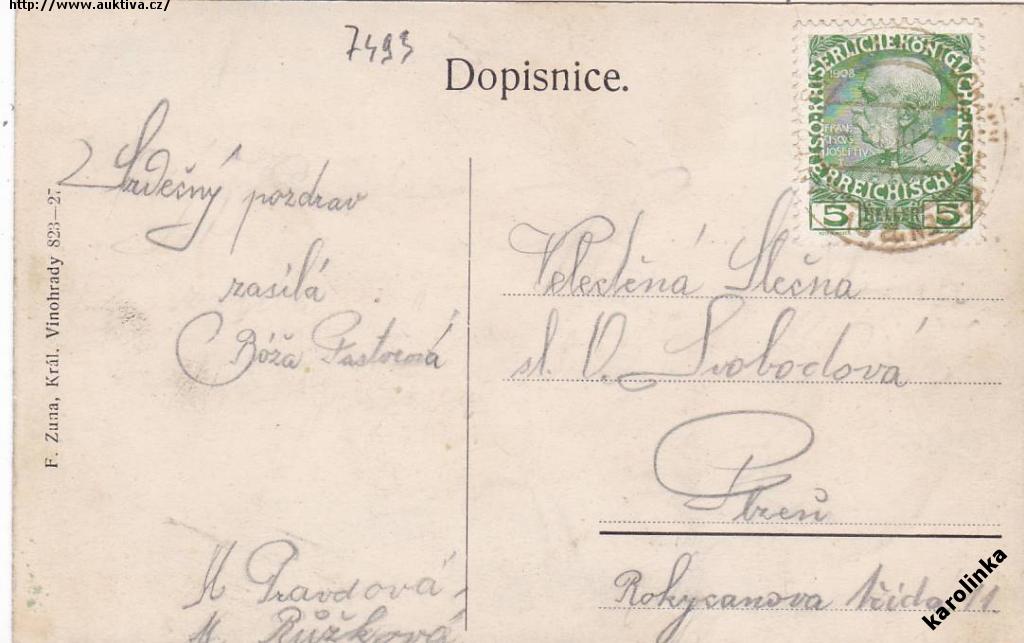 http://www.auktiva.cz/
7493
Dopisnice.
KAISERLICHE KÖNIGLICHE
ÖSTERREICHISCHE
1908
FRAN
CISCVS
JOSEPH IV
5 HELLER 5
Srdečný pozdrav
zasílá
Bóža
M Pravdová
M. Růžková
Veleděná Slečna
sl. V. Svobodová
Plzeň
Rokycanova třída 11
F. Zuna, Král. Vinohrady 823—27
karolinka